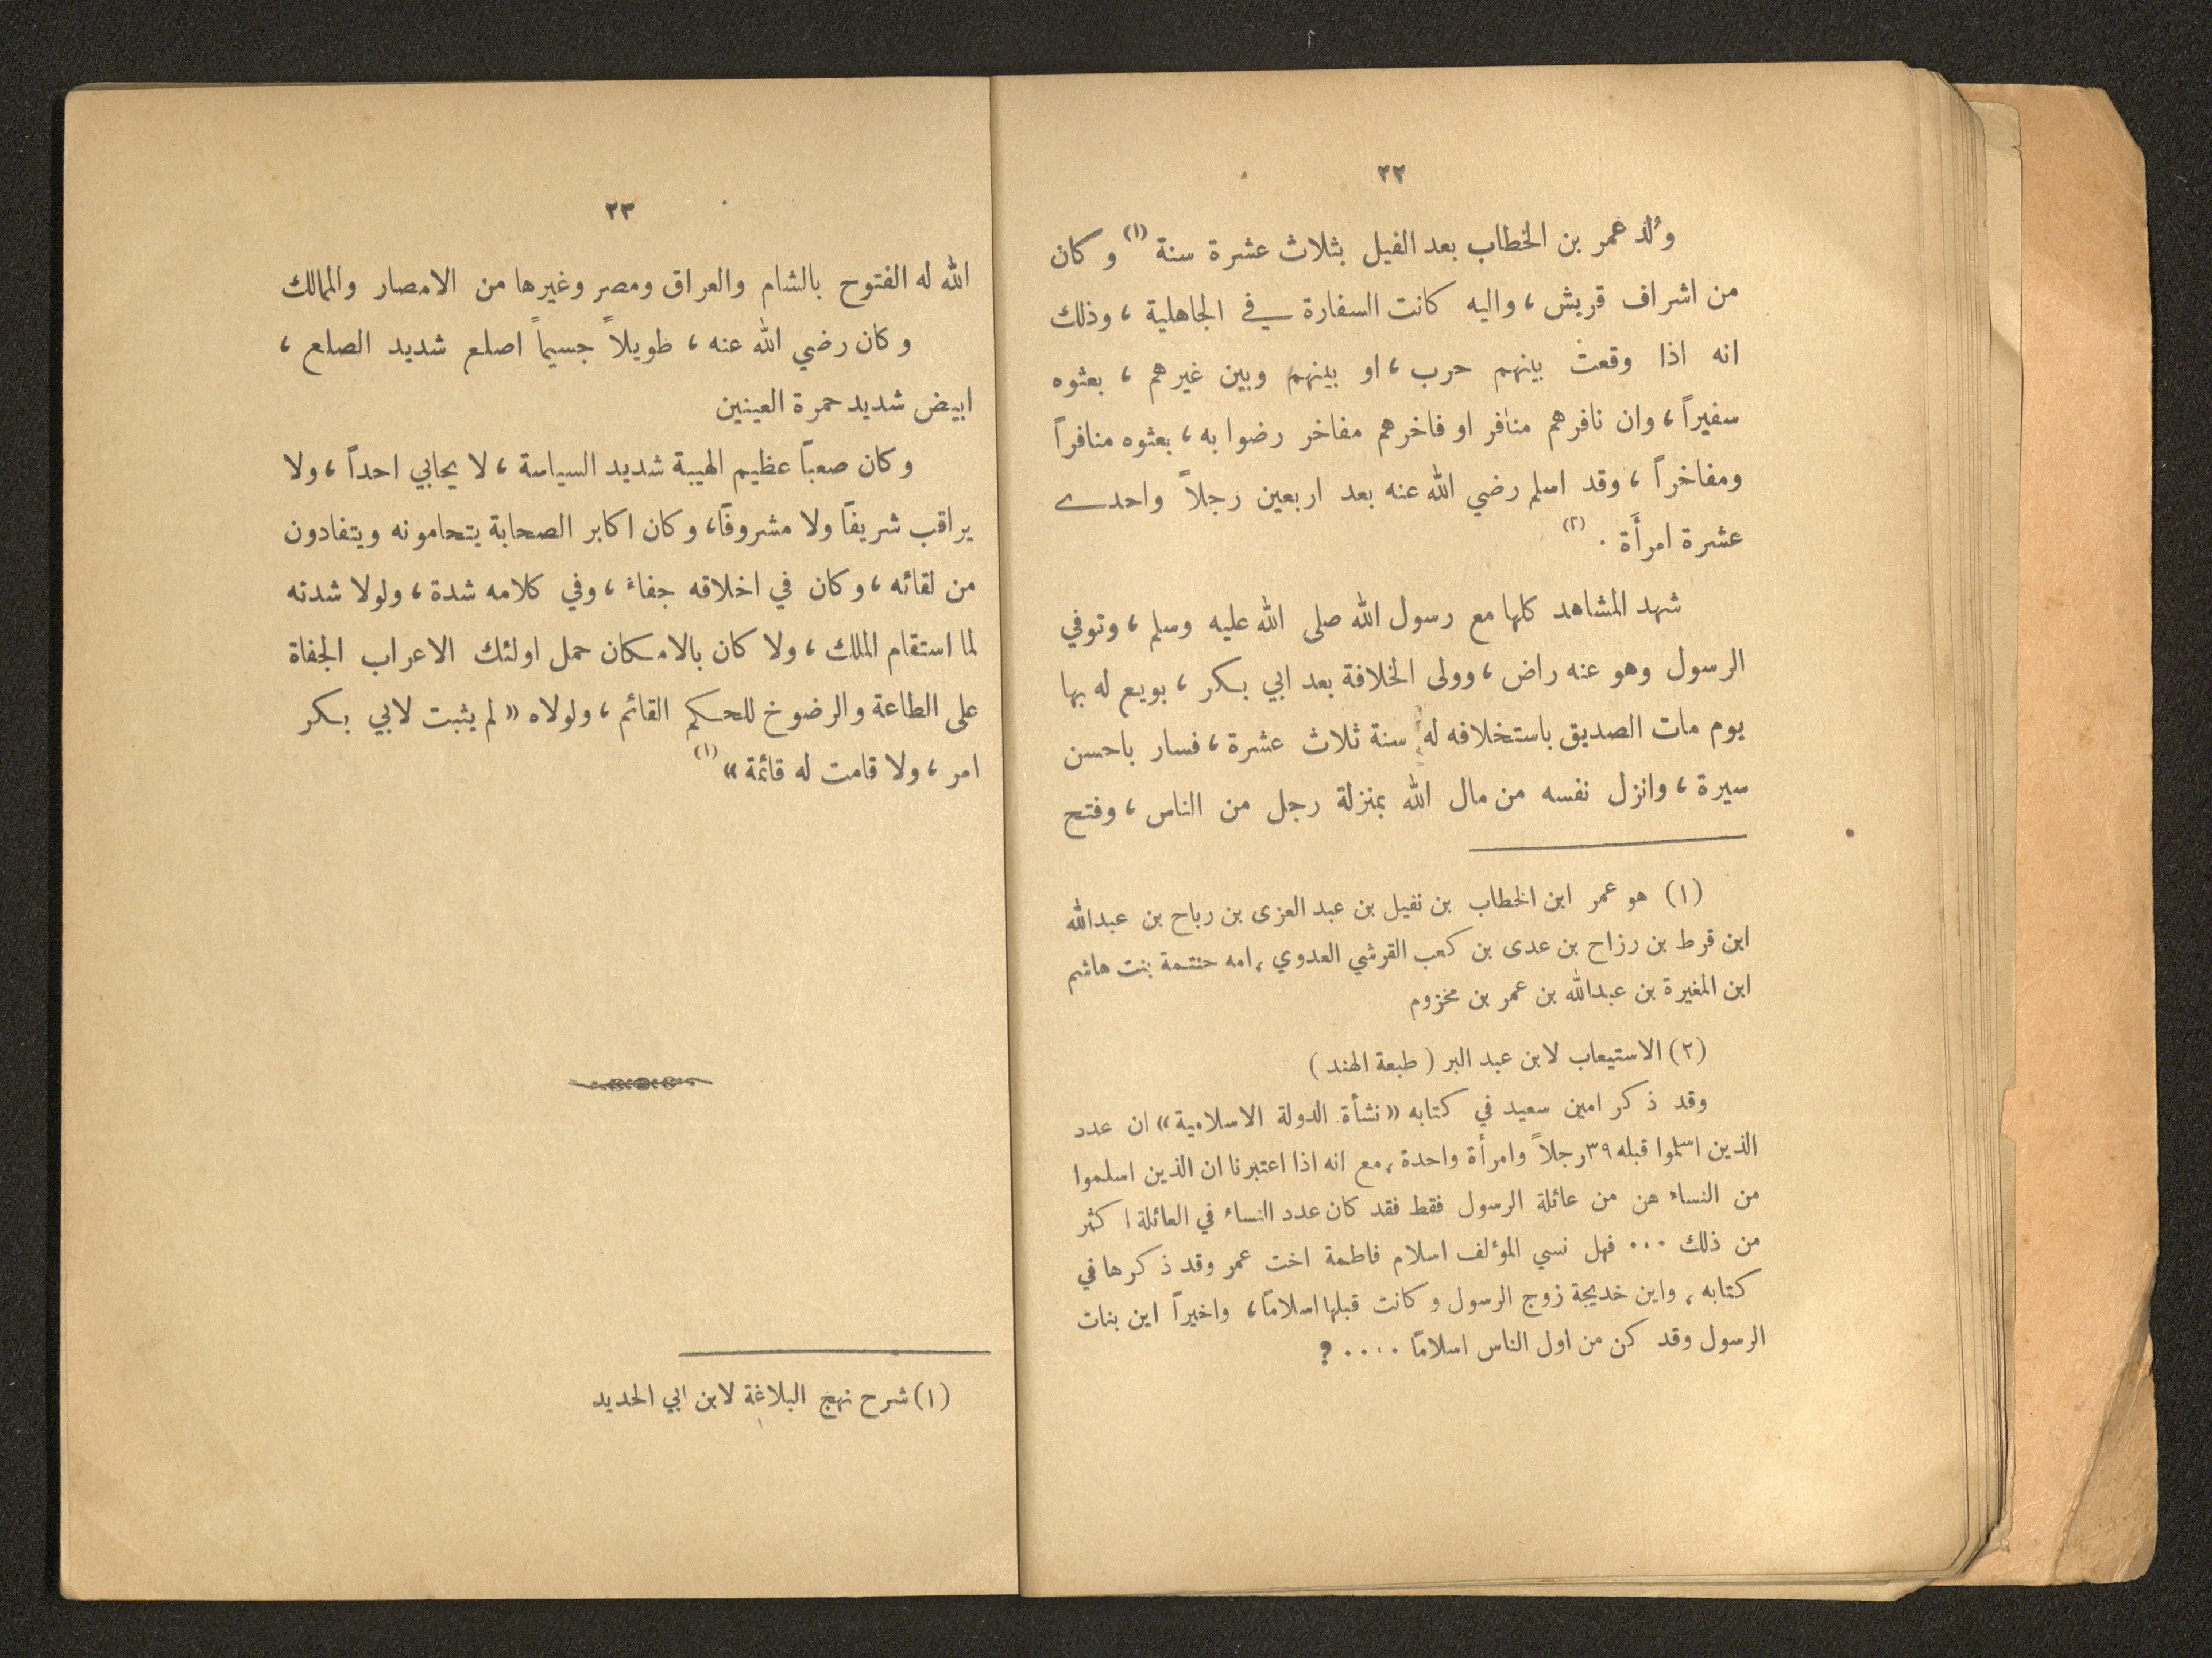 ٢٢
وُلد عمر بن الخطاب بعد الفيل بثلاث عشرة سنة (١) وكان
من اشراف قريش، واليه كانت السفارة في الجاهلية، وذلك
انه اذا وقعت بينهم حرب، او بينهم وبين غيرهم، بعثوه
سفيراً، وان نافرهم منافر او فاخرهم مفاخر رضوا به، بعثوه منافراً
ومفاخراً، وقد اسلم رضي الله عنه بعد اربعين رجلاً واحدى
عشرة امرأَة . (٢)
شهد المشاهد كلها مع رسول الله صلى الله عليه وسلم، وتوفي
الرسول وهو عنه راض، وولى الخلافة بعد ابي بكر، بويع له بها
يوم مات الصديق باستخلافه له سنة ثلاث عشرة، فسار باحسن
سيرة، وانزل نفسه من مال الله بمنزلة رجل من الناس، وفتح
(١) هو عمر ابن الخطاب بن نفيل بن عبد العزى بن رباح بن عبدالله
ابن قرط بن رزاح بن عدى بن كعب القرشي العدوي، امه حنتمة بنت هاشم
ابن المغيرة بن عبدالله بن عمر بن مخزوم
(٢) الاستيعاب لابن عبد البر (طبعة الهند)
وقد ذكر امين سعيد في كتابه «نشأة الدولة الاسلامية» ان عدد
الذين اسلموا قبله ٣٩ رجلاً وامرأة واحدة، مع انه اذا اعتبرنا ان الذين اسلموا
من النساء هن من عائلة الرسول فقط فقد كان عدد النساء في العائلة اكثر
من ذلك ... فهل نسي المؤلف اسلام فاطمة اخت عمر وقد ذكرها في
كتابه، واين خديجة زوج الرسول وكانت قبلها اسلاماً، واخيراً اين بنات
الرسول وقد كن من اول الناس اسلاماً ....؟
٢٣
الله له الفتوح بالشام والعراق ومصر وغيرها من الامصار والممالك
وكان رضي الله عنه، طويلاً جسيماً اصلع شديد الصلع،
ابيض شديد حمرة العينين
وكان صعباً عظيم الهيبة شديد السياسة، لا يحابي احداً، ولا
يراقب شريفاً ولا مشروفاً، وكان اكابر الصحابة يتحامونه ويتفادون
من لقائه، وكان في اخلاقه جفاء، وفي كلامه شدة، ولولا شدته
لما استقام الملك، ولا كان بالامكان حمل اولئك الاعراب الجفاة
على الطاعة والرضوخ للحكم القائم، ولولاه «لم يثبت لابي بكر
امر، ولا قامت له قائمة» (١)
(١) شرح نهج البلاغة لابن ابي الحديد